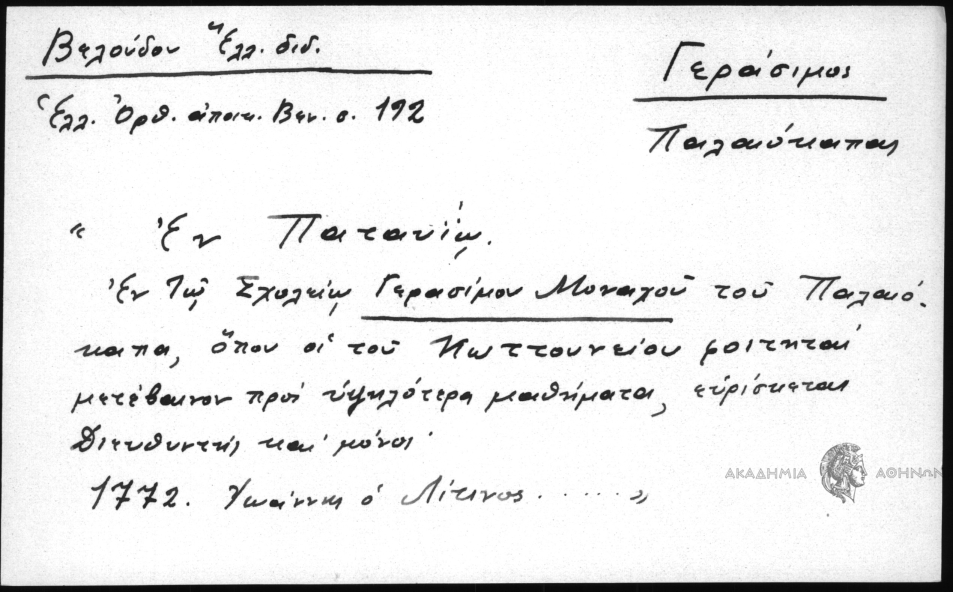 Βελούδου Ἑλλ. διδ.
Ἑλλ. Ὀρθ. ἀποικ. Βεν. σ. 192
Γεράσιμος
Παλαιόκαπας
« Ἐν Παταυίῳ.
Ἐν Τῷ Σχολείῳ Γερασίμου Μοναχοῦ τοῦ Παλαιό-
καπα, ὅπου οἱ τοῦ Κωττουνείου φοιτηταὶ
μετέβαινον πρὸς ὑψηλότερα μαθήματα, εὑρίσκεται
Διευθυντὴς καὶ μόνος·
1772. Ἰωάννης ὁ Λίτινος ...... »
ΑΚΑΔΗΜΙΑ ΑΘΗΝΩΝ